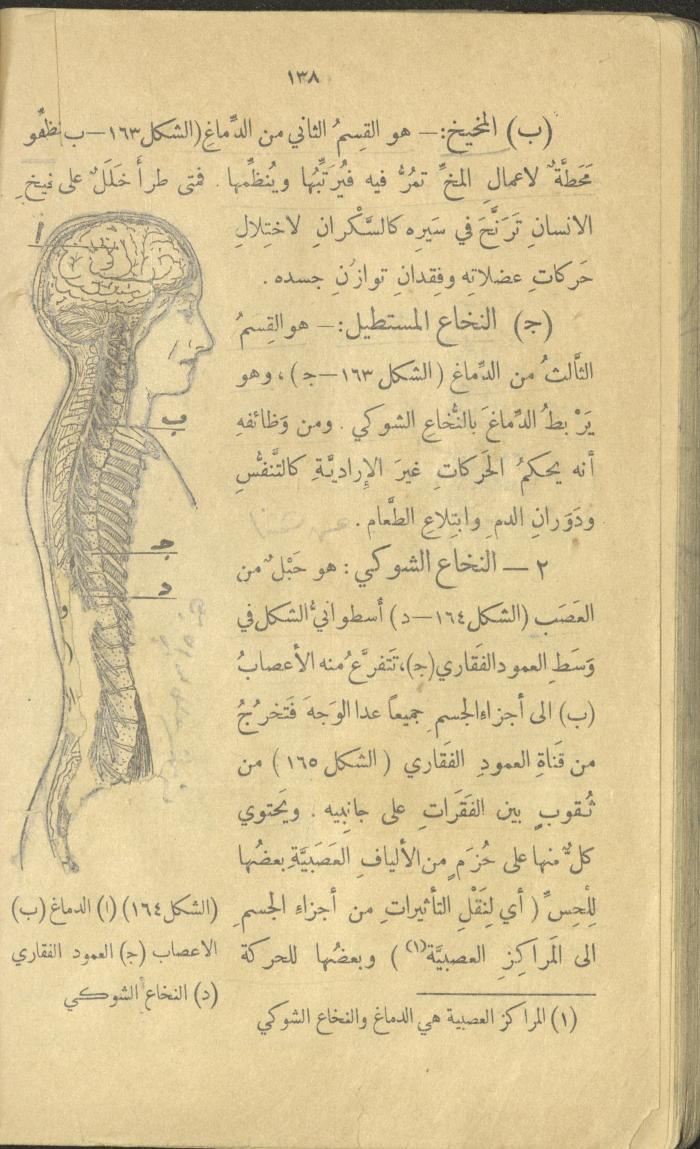 ١٣٨
(ب) المخيخ:— هو القِسمُ الثاني من الدِّماغِ (الشكل ١٦٣—ب)
مَحَطَّةٌ لاعمالِ المخِّ تمرُّ فيه فيُرَتِّبُها ويُنظِّمها . فمتى طرأ خَلَلٌ على مخيخِ
الانسانِ تَرَنَّحَ في سَيرِه كالسَّكْرانِ لاختِلالِ
حَركاتِ عضلاتِه وفِقدانِ توازُنِ جسده .
(ج) النخاع المستطيل:— هو القِسمُ
الثَّالثُ من الدِّماغ (الشكل ١٦٣—ج) ، وهو
يَرْبطُ الدِّماغَ بالنُّخاعِ الشوكي . ومن وَظائفهِ
أنه يحكمُ الحَركاتِ غيرَ الإِراديَّةِ كالتَّنفُّسِ
ودَوَرانِ الدمِ وابتِلاعِ الطَّعامِ .
٢ — النخاع الشوكي : هو حَبْلٌ من
العَصَب (الشكل ١٦٤—د) أسطوانيُّ الشكل في
وَسَطِ العمودِ الفَقاري (ج)، تَتَفرَّعُ منه الأعصابُ
(ب) الى أجزاءِ الجسمِ جميعاً عدا الوَجهَ فَتَخرُجُ
من قَناةِ العمودِ الفَقاري (الشكل ١٦٥) من
ثُقوبٍ بين الفَقَراتِ على جانِبيه . ويَحتوي
كلٌّ منها على حُزَمٍ من الألياف العَصَبِيَّةِ بعضُها
لِلْحِسِّ (أي لِنَقْلِ التأثيراتِ من أجزاءِ الجسمِ
الى المَراكِزِ العصبيَّة(١)) وبعضُها للحركة
ا
ب
ج
د
(الشكل ١٦٤) (ا) الدماغ (ب)
الاعصاب (ج) العمود الفقاري
(د) النخاع الشوكي
(١) المراكز العصبية هي الدماغ والنخاع الشوكي